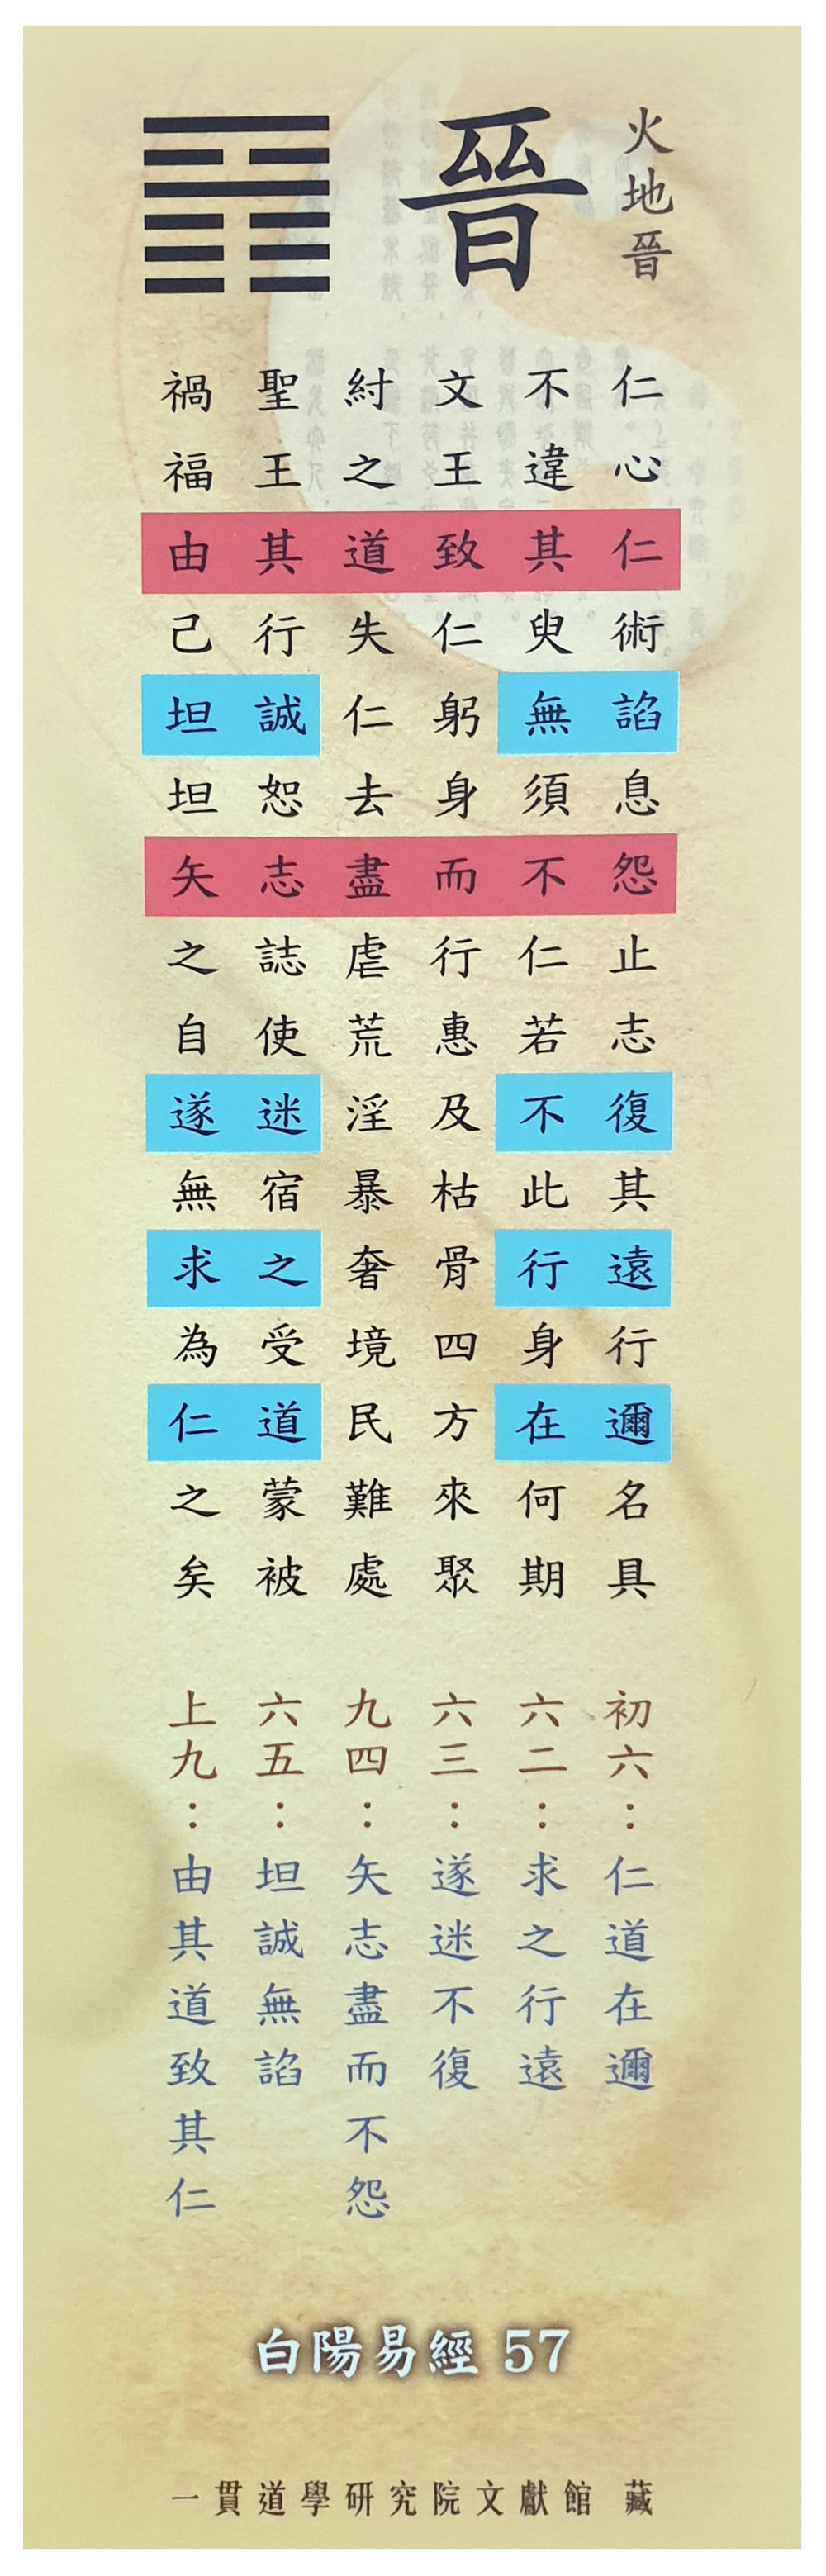 火地晉
晉
仁心仁術諂息怨止志復其遠行邇名具
不違其臾無須不仁若不此行身在何期
文王致仁躬身而行惠及枯骨四方來聚
紂之道失仁去盡虐荒淫暴奢境民難處
聖王其行誠恕志誌使迷宿之受道蒙被
禍福由己坦坦矢之自遂無求為仁之矣
初六：仁道在邇
六二：求之行遠
六三：遂迷不復
九四：矢志盡而不怨
六五：坦誠無諂
上九：由其道致其仁
白陽易經 57
一貫道學研究院文獻館 藏